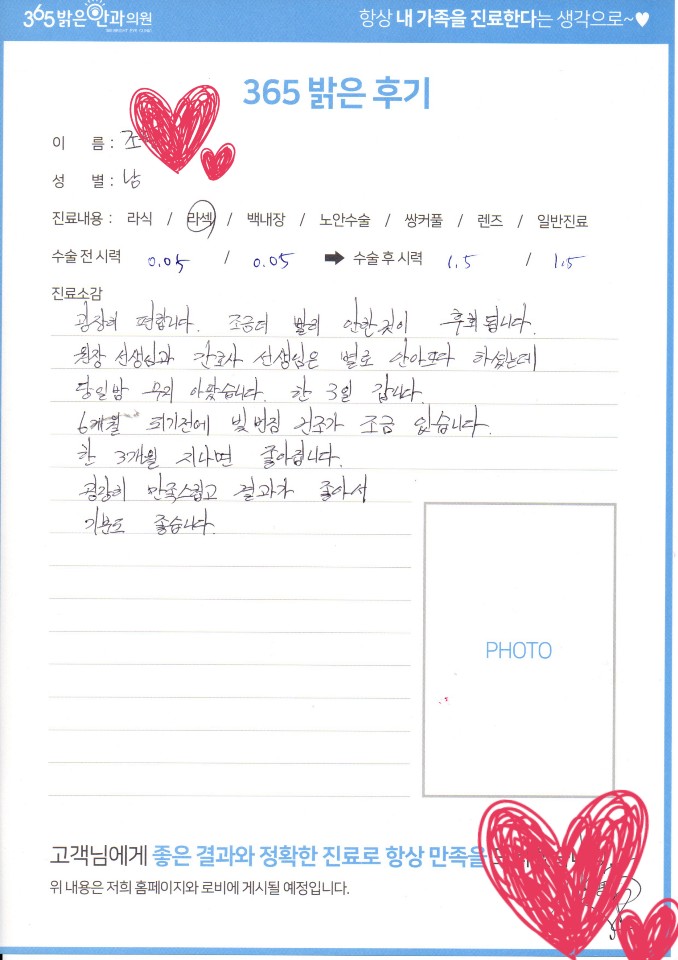 365밝은안과의원
항상 내 가족을 진료한다는 생각으로~♥
365 밝은 후기
이 름 : 조
성 별 : 남
진료내용 : 라식 / 라섹 / 백내장 / 노안수술 / 쌍커풀 / 렌즈 / 일반진료
수술 전 시력 0.05 / 0.05 ➡ 수술 후 시력 1.5 / 1.5
진료소감
굉장히 편합니다. 조금더 빨리 안한것이 후회됩니다.
원장 선생님과 간호사 선생님은 별로 안아프다 하셨는데
당일밤 무지 아팠습니다. 한 3일 갑니다.
6개월 되기전에 빛번짐 건조가 조금 있습니다.
한 3개월 지나면 좋아집니다.
굉장히 만족스럽고 결과가 좋아서
기분도 좋습니다.
PHOTO
고객님에게 좋은 결과와 정확한 진료로 항상 만족을
위 내용은 저희 홈페이지와 로비에 게시될 예정입니다.